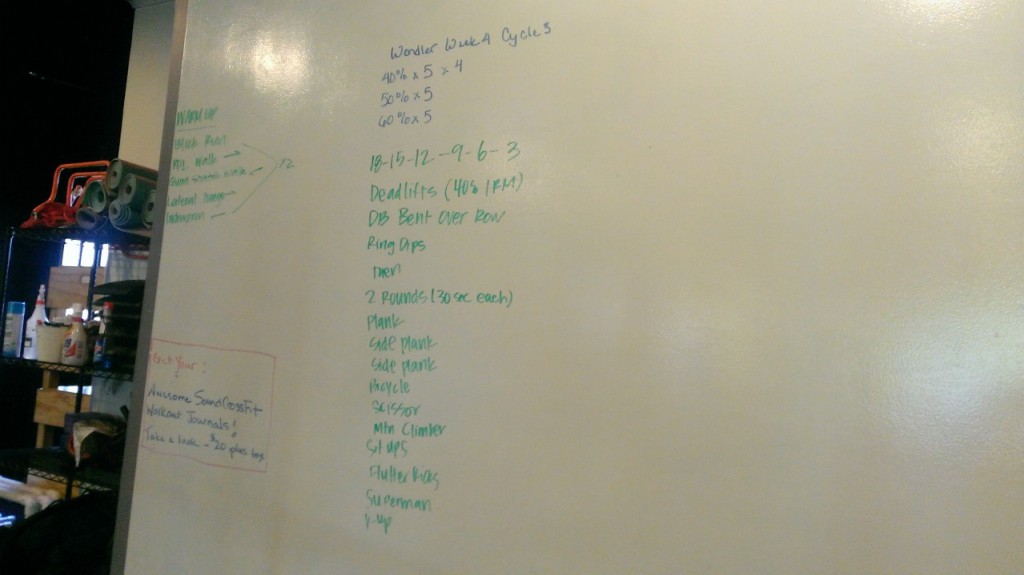 Wendler Week 4 Cycle 3
40% x 5 x 4
50% x 5
60% x 5
WARM UP
Block Run
Walk →
x2
Lateral lunge
18-15-12--9-6-3
Deadlifts (40% 1RM)
DB Bent Over Row
Ring Dips
Then
2 Rounds (30 sec each)
Plank
Side plank
Side plank
Bicycle
Scissor
Mtn Climber
Sit ups
Flutter Kicks
Superman
V-up
Your:
Awesome Sound CrossFit
Workout Journals!
Take a look - $20 plus tax